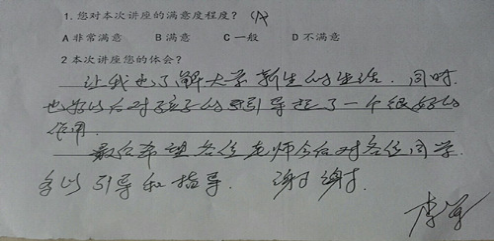 1. 您对本次讲座的满意度程度？ (A)
A 非常满意 B 满意 C 一般 D 不满意
2 本次讲座您的体会？
让我也了解大学新生的生活. 同时.
也为以后对孩子的引导起了一个很好的
作用.
最后希望各位老师今后对各位同学.
多以引导和指导. 谢谢.
李军